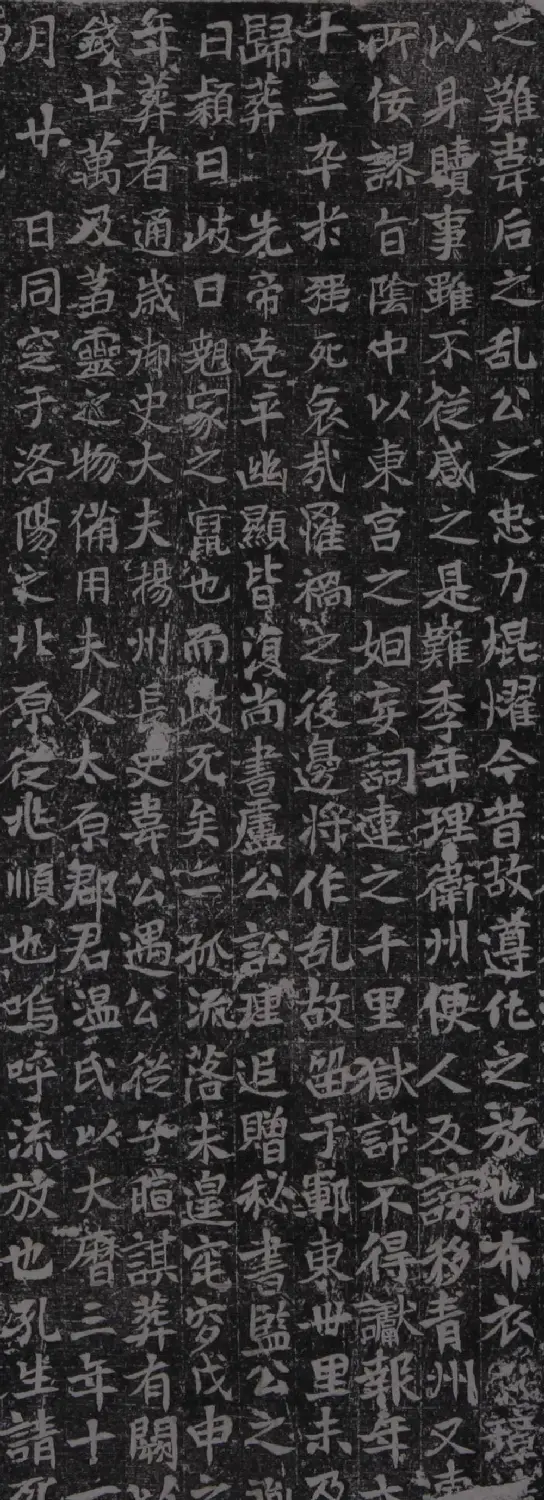 之難韋后之乱公之忠力焜燿今昔故遵化之放也布衣
以身贖事雖不從感之是難季年理衛州便人及謗移青州又
所佞謬旨陰中以東宮之姻妄詞連之千里獄訊不得讞報年六
十三卒扵强死哀哉罹禍之後邊将作乱故留于鄆東卅里未及
歸葬先帝克平幽顯皆復尚書盧公訟理追贈秘書監公之
曰穎曰岐曰翹家之竄也而歧死矣二孤流落未遑窀穸戊申之
年葬者通歲御史大夫揚州長史韋公遇公從子暄謀葬有闕以
錢廿萬及芻靈之物俻用夫人太原郡君温氏以大曆三年十一
月廿日同窆于洛陽之北原從兆順也嗚呼流放也孔生請死